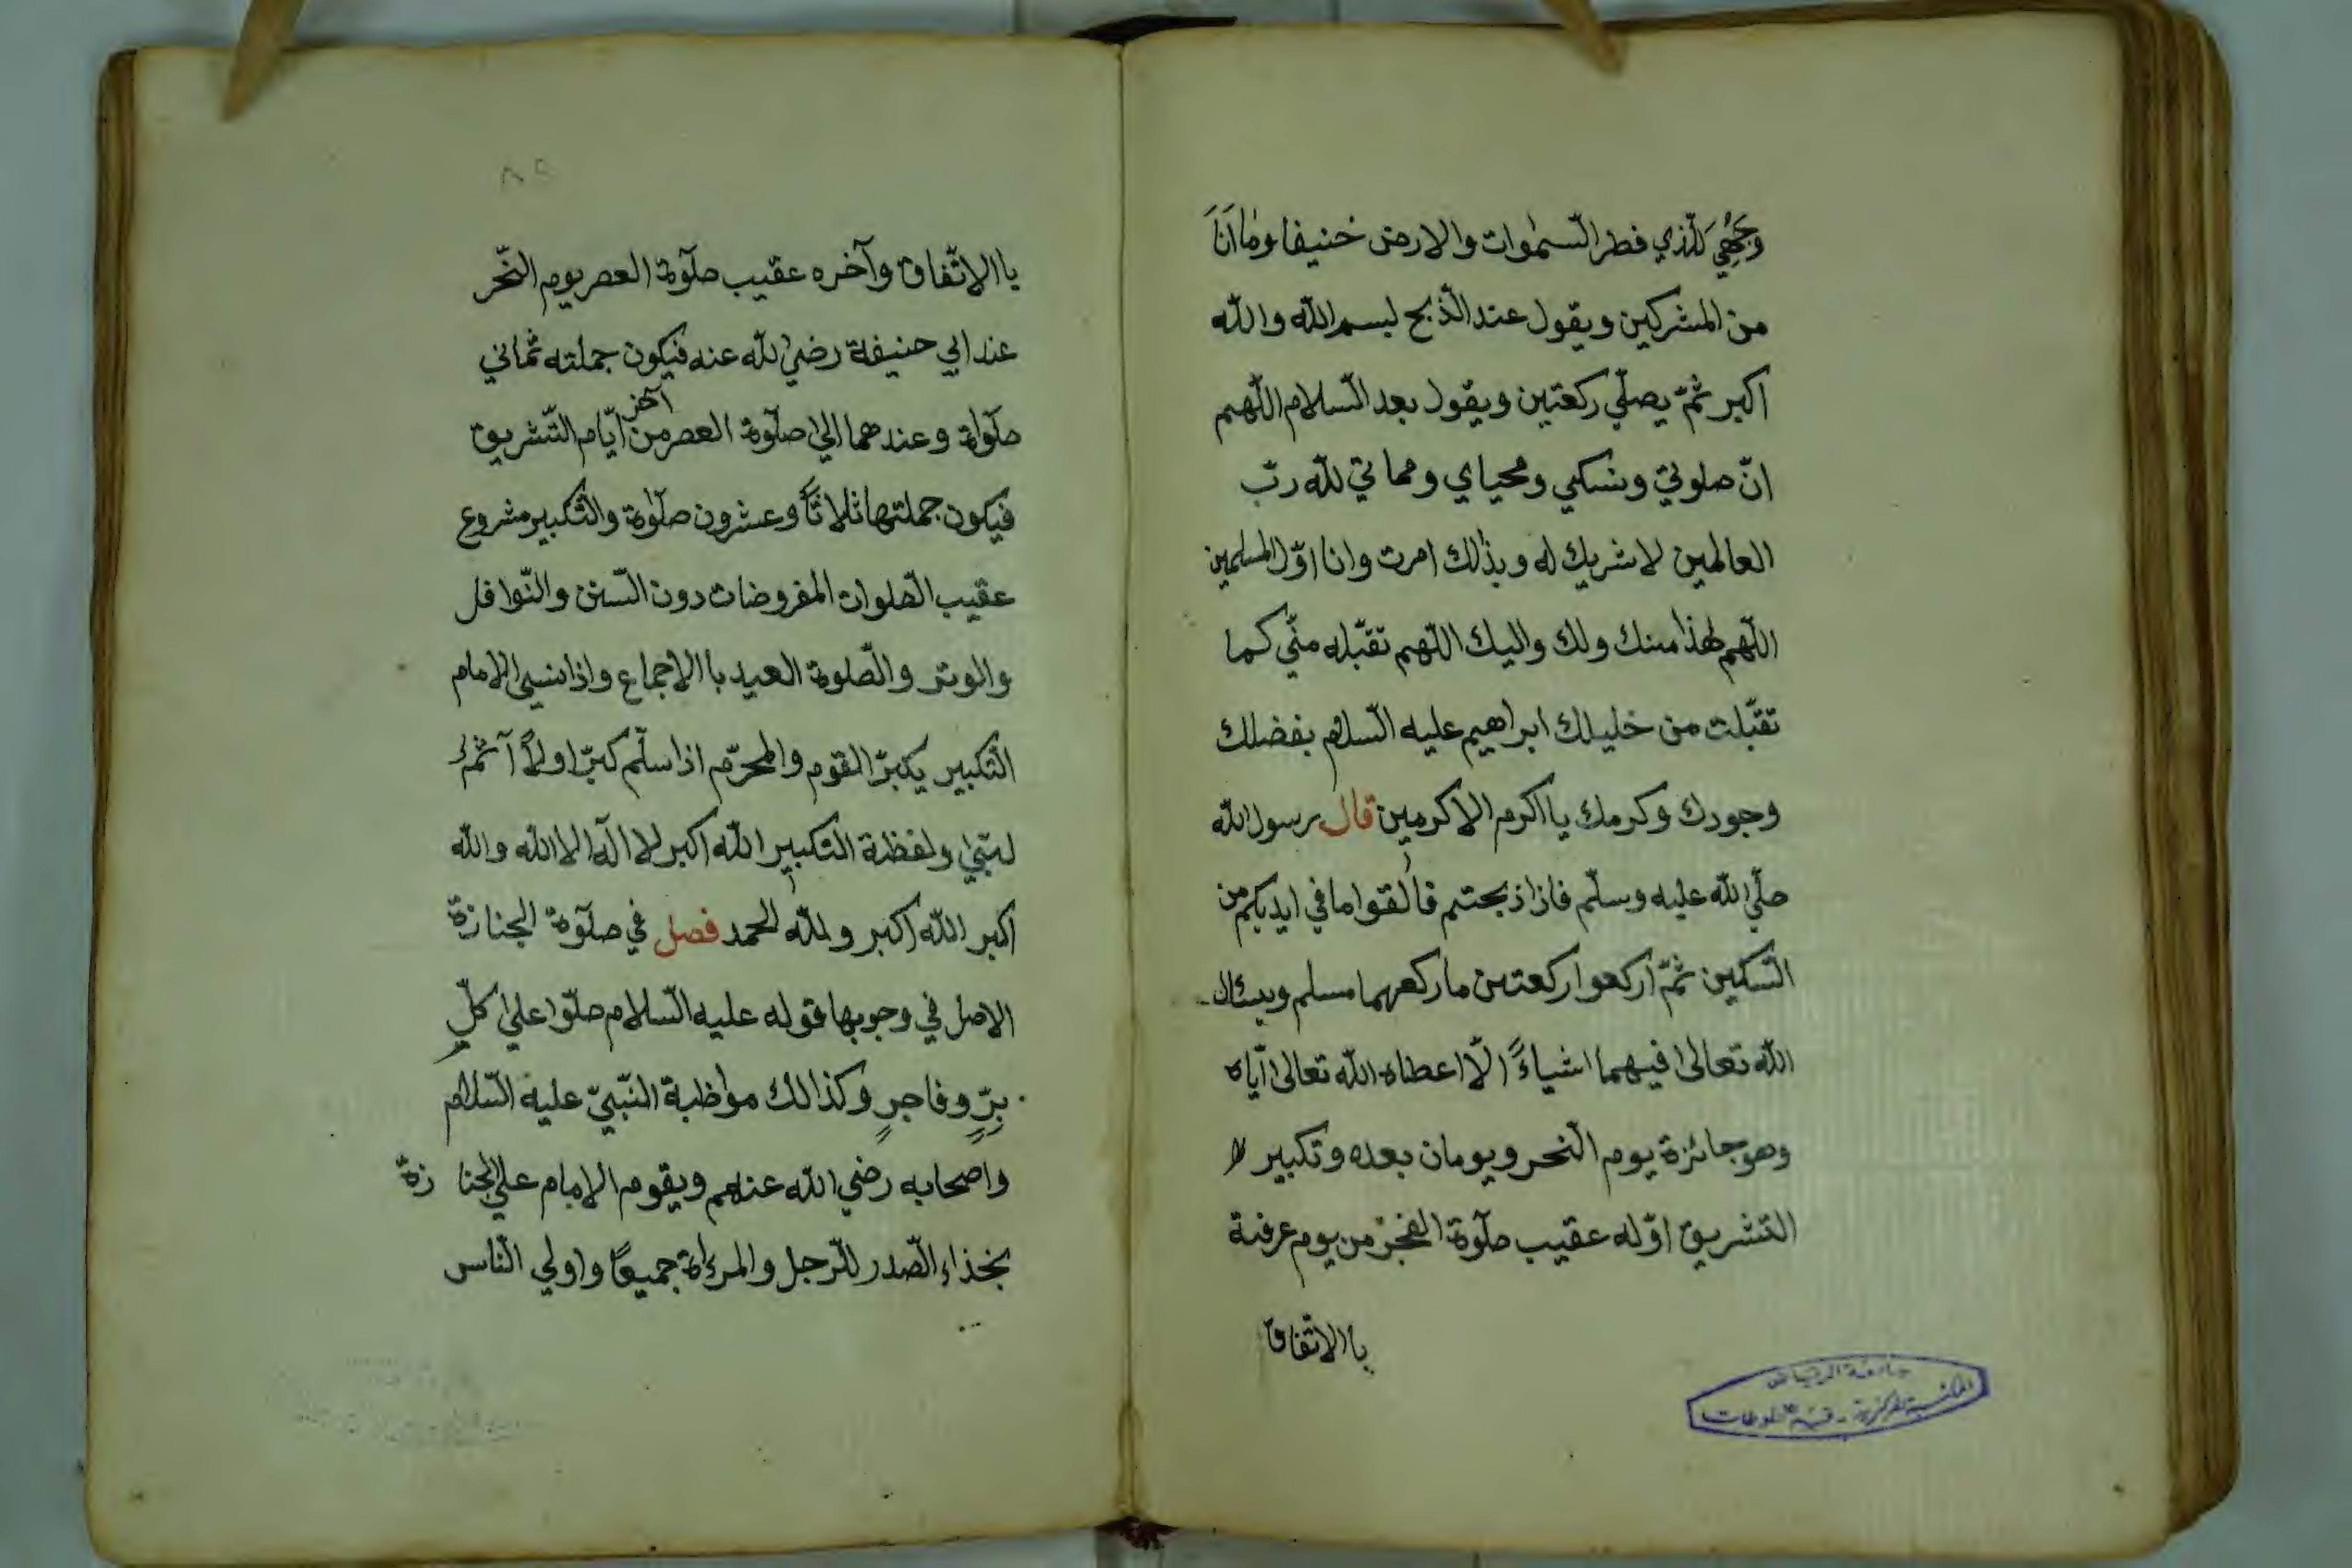 وَجْهِيَ لِلّذي فطر السّمٰوات والارض حنيفا وما اَنَا
من المشركين ويقول عند الذّبح لبسم الله والله
اكبر ثمّ يصلّي ركعتين ويقول بعد السّلام اللّهم
انّ صلوتي ونسكي ومحياي ومماتي لله ربّ
العالمين لا شريك له وبذٰلك امرت وانا اوّل المسلمين
اللّهم هٰذا منك ولك واليك اللّهم تقبّله منّي كما
تقبّلت من خليلك ابراهيم عليه السّلام بفضلك
وجودك وكرمك يا اكرم الاكرمين قال رسول الله
صلّي الله عليه وسلّم فاذا ذبحتم فالقوا ما في ايديكم من
السّكين ثمّ اركعوا ركعتين ما ركعهما مسلم ويسئال
الله تعالىٰ فيهما اشياءً الّا اعطاه الله تعالىٰ ايّاه
وهو جائزة يوم النّحر ويومان بعده وتكبير
التّشريق اوّله عقيب صلٓوة الفجر من يوم عرفة
باالاتّفاق
٨٩
باالاتّفاق وآخره عقيب صلٓوة العصر يوم النّحر
عند ابي حنيفة رضي الله عنه فيكون جملته ثماني
صلٓواة وعندهما الي صلٓوة العصر من آخر ايّام التّشريق
فيكون جملتها ثلاثاً وعشرون صلٓوة والتّكبير مشروع
عقيب الصّلوات المفروضات دون السّنن والنّوافل
والوتر والصّلوة العيد باالاجماع واذا نسي الامام
التّكبير يكبّر القوم والمحرّم اذا سلّم كبّر اولاً ثمّ
لبّي ولفظة التّكبير الله اكبر لا الٓه الا الله والله
اكبر الله اكبر ولله الحمد فصل في صلٓوة الجنازة
الاصل في وجوبها قوله عليه السّلام صلّوا علىٰ كلّ
برّ وفاجرٍ وكذالك مواظبة النّبيّ عليه السّلام
واصحابه رضي الله عنهم ويقوم الامام علي الجنازة
بخذاء الصّدر للرّجل والمرءاة جميعاً واولي النّاس
جامعة الرياض
المكتبة المركزية - قسم المخطوطات